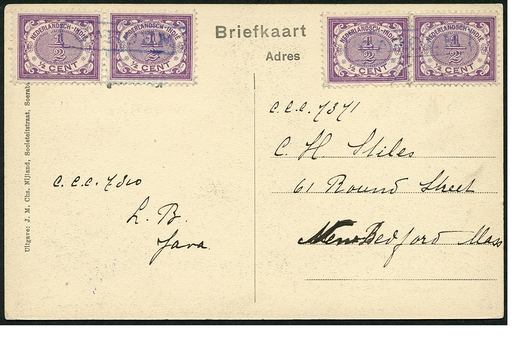 NEDERLANDSCH-INDIË NEDERLANDSCH-INDIË
1/2 1/2
1/2 CENT 1/2 CENT
Briefkaart
Adres
NEDERLANDSCH-INDIË NEDERLANDSCH-INDIË
1/2 1/2
1/2 CENT 1/2 CENT
Uitgave: J. M. Chs. Nijland, Societeitstraat, Soerab
c.c.c. 7310
L. B.
Java
c.c.c. 7371
C. H. Stiles
61 Round Street
New Bedford Mass